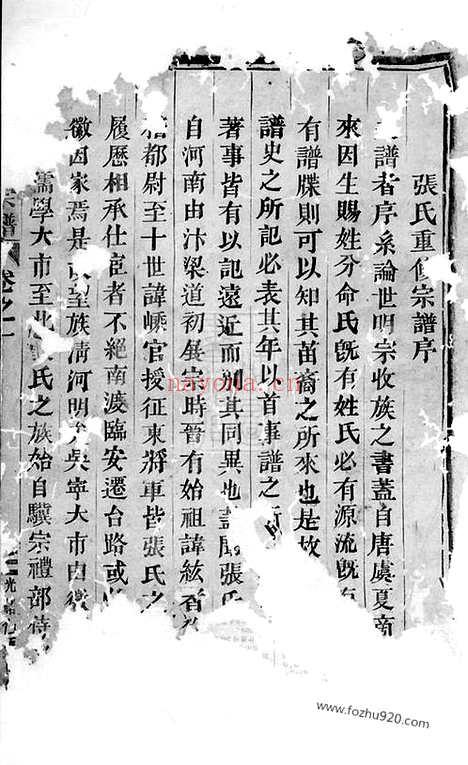 張氏重修宗譜序
譜者序系論世明宗收族之書蓋自唐虞夏商
來因生賜姓分命氏既有姓氏必有源流既有
有譜牒則可以知其苗裔之所來也是故
譜史之所記必表其年以首事譜之所
著事皆有以記遠近而別其同異也 張氏
自河南由汴梁道初展宗時晉有始祖諱紘者
都尉至十世諱嵊官授征東將軍皆張氏之
履歷相承仕宦者不絕南渡臨安遷台路或
徽因家焉是 望族清河明 吳寧大市由
儒學大市至 氏之族始自驥宗禮部侍
宗譜 卷之一
光緒
navona.cn
www.fozhu920.com